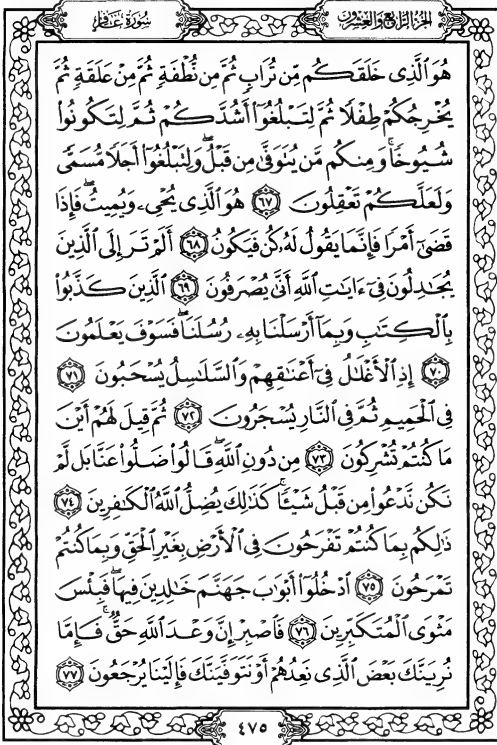 سُورَةُ غَافِرٍ الجُزْءُ الرَّابِعُ وَالعِشْرُونَ
هُوَ ٱلَّذِى خَلَقَكُم مِّن تُرَابٍ ثُمَّ مِن نُّطْفَةٍ ثُمَّ مِنْ عَلَقَةٍ ثُمَّ
يُخْرِجُكُمْ طِفْلًا ثُمَّ لِتَبْلُغُوٓا۟ أَشُدَّكُمْ ثُمَّ لِتَكُونُوا۟
شُيُوخًا ۚ وَمِنكُم مَّن يُتَوَفَّىٰ مِن قَبْلُ ۖ وَلِتَبْلُغُوٓا۟ أَجَلًا مُّسَمًّى
وَلَعَلَّكُمْ تَعْقِلُونَ ٦٧ هُوَ ٱلَّذِى يُحْىِۦ وَيُمِيتُ ۖ فَإِذَا
قَضَىٰٓ أَمْرًا فَإِنَّمَا يَقُولُ لَهُۥ كُن فَيَكُونُ ٦٨ أَلَمْ تَرَ إِلَى ٱلَّذِينَ
يُجَٰدِلُونَ فِىٓ ءَايَٰتِ ٱللَّهِ أَنَّىٰ يُصْرَفُونَ ٦٩ ٱلَّذِينَ كَذَّبُوا۟
بِٱلْكِتَٰبِ وَبِمَآ أَرْسَلْنَا بِهِۦ رُسُلَنَا ۖ فَسَوْفَ يَعْلَمُونَ
٧٠ إِذِ ٱلْأَغْلَٰلُ فِىٓ أَعْنَٰقِهِمْ وَٱلسَّلَٰسِلُ يُسْحَبُونَ ٧١
فِى ٱلْحَمِيمِ ثُمَّ فِى ٱلنَّارِ يُسْجَرُونَ ٧٢ ثُمَّ قِيلَ لَهُمْ أَيْنَ
مَا كُنتُمْ تُشْرِكُونَ ٧٣ مِن دُونِ ٱللَّهِ ۖ قَالُوا۟ ضَلُّوا۟ عَنَّا بَل لَّمْ
نَكُن نَّدْعُوا۟ مِن قَبْلُ شَيْـًٔا ۚ كَذَٰلِكَ يُضِلُّ ٱللَّهُ ٱلْكَٰفِرِينَ ٧٤
ذَٰلِكُم بِمَا كُنتُمْ تَفْرَحُونَ فِى ٱلْأَرْضِ بِغَيْرِ ٱلْحَقِّ وَبِمَا كُنتُمْ
تَمْرَحُونَ ٧٥ ٱدْخُلُوٓا۟ أَبْوَٰبَ جَهَنَّمَ خَٰلِدِينَ فِيهَا ۖ فَبِئْسَ
مَثْوَى ٱلْمُتَكَبِّرِينَ ٧٦ فَٱصْبِرْ إِنَّ وَعْدَ ٱللَّهِ حَقٌّ ۚ فَإِمَّا
نُرِيَنَّكَ بَعْضَ ٱلَّذِى نَعِدُهُمْ أَوْ نَتَوَفَّيَنَّكَ فَإِلَيْنَا يُرْجَعُونَ ٧٧
٤٧٥